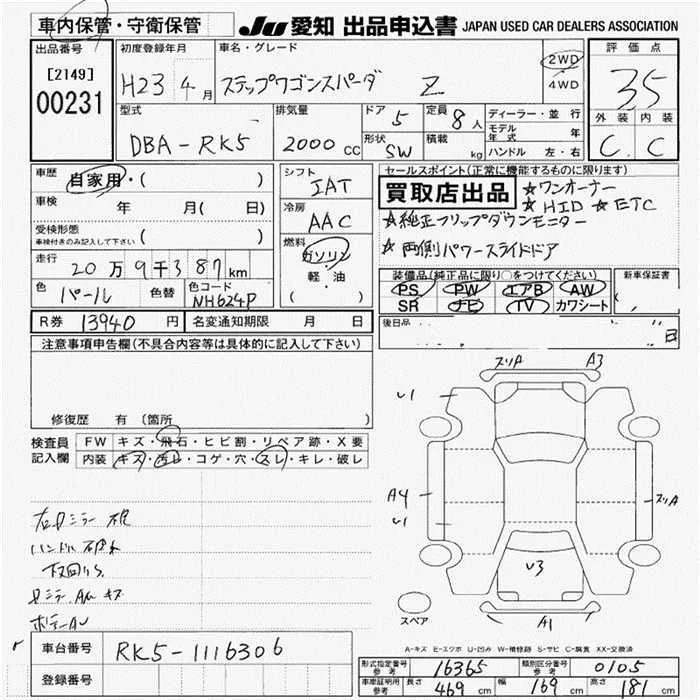 車内保管・守衛保管 JU 愛知 出品申込書 JAPAN USED CAR DEALERS ASSOCIATION
出品番号 初度登録年月 車名・グレード 評価点
[2149] 00231 H23年 4月 ステップワゴンスパーダ Z 2WD 4WD 35
型式 排気量 ドア 5 定員 8人 ディーラー・並行 外装 内装
DBA-RK5 2000cc 形状 SW 積載 kg モデル年式 年 C C
ハンドル 左・右
車歴 自家用・( ) シフト IAT セールスポイント(正常に機能するものに限ります)
買取店出品 ☆ワンオーナー
☆HID ☆ETC
車検 年 月( 日) 冷房 AAC ☆純正フリップダウンモニター
受検形態 ( )
車検付きのみ記入して下さい
☆両側パワースライドドア
走行 20万9千387km 燃料 ガソリン・軽・油 ( )
装備品(純正品に限り○をつけてください) 新車保証書
色 パール 色替 色コード NH624P PS PW エアB AW
SR ナビ TV カワシート
R券 13940円 名変通知期限 月 日 後日品
注意事項申告欄(不具合内容等は具体的に記入して下さい)
修復歴 有 (箇所 )
検査員記入欄 FW キズ・飛石・ヒビ割・リペア跡・X要
内装 キズ・汚レ・コゲ・穴・スレ・キレ・破レ
スリA A3
U1
A4
スリA
U1
U3
A1
スペア
ハンドル
A-キズ E-エクボ U-凹み W-補修跡 S-サビ C-腐食 XX-交換済
車台番号 RK5-1116306
登録番号
形式指定番号 参考 16365 類別区分番号 参考 0105
車庫証明用 参考 長さ 469cm 幅 169cm 高さ 181cm